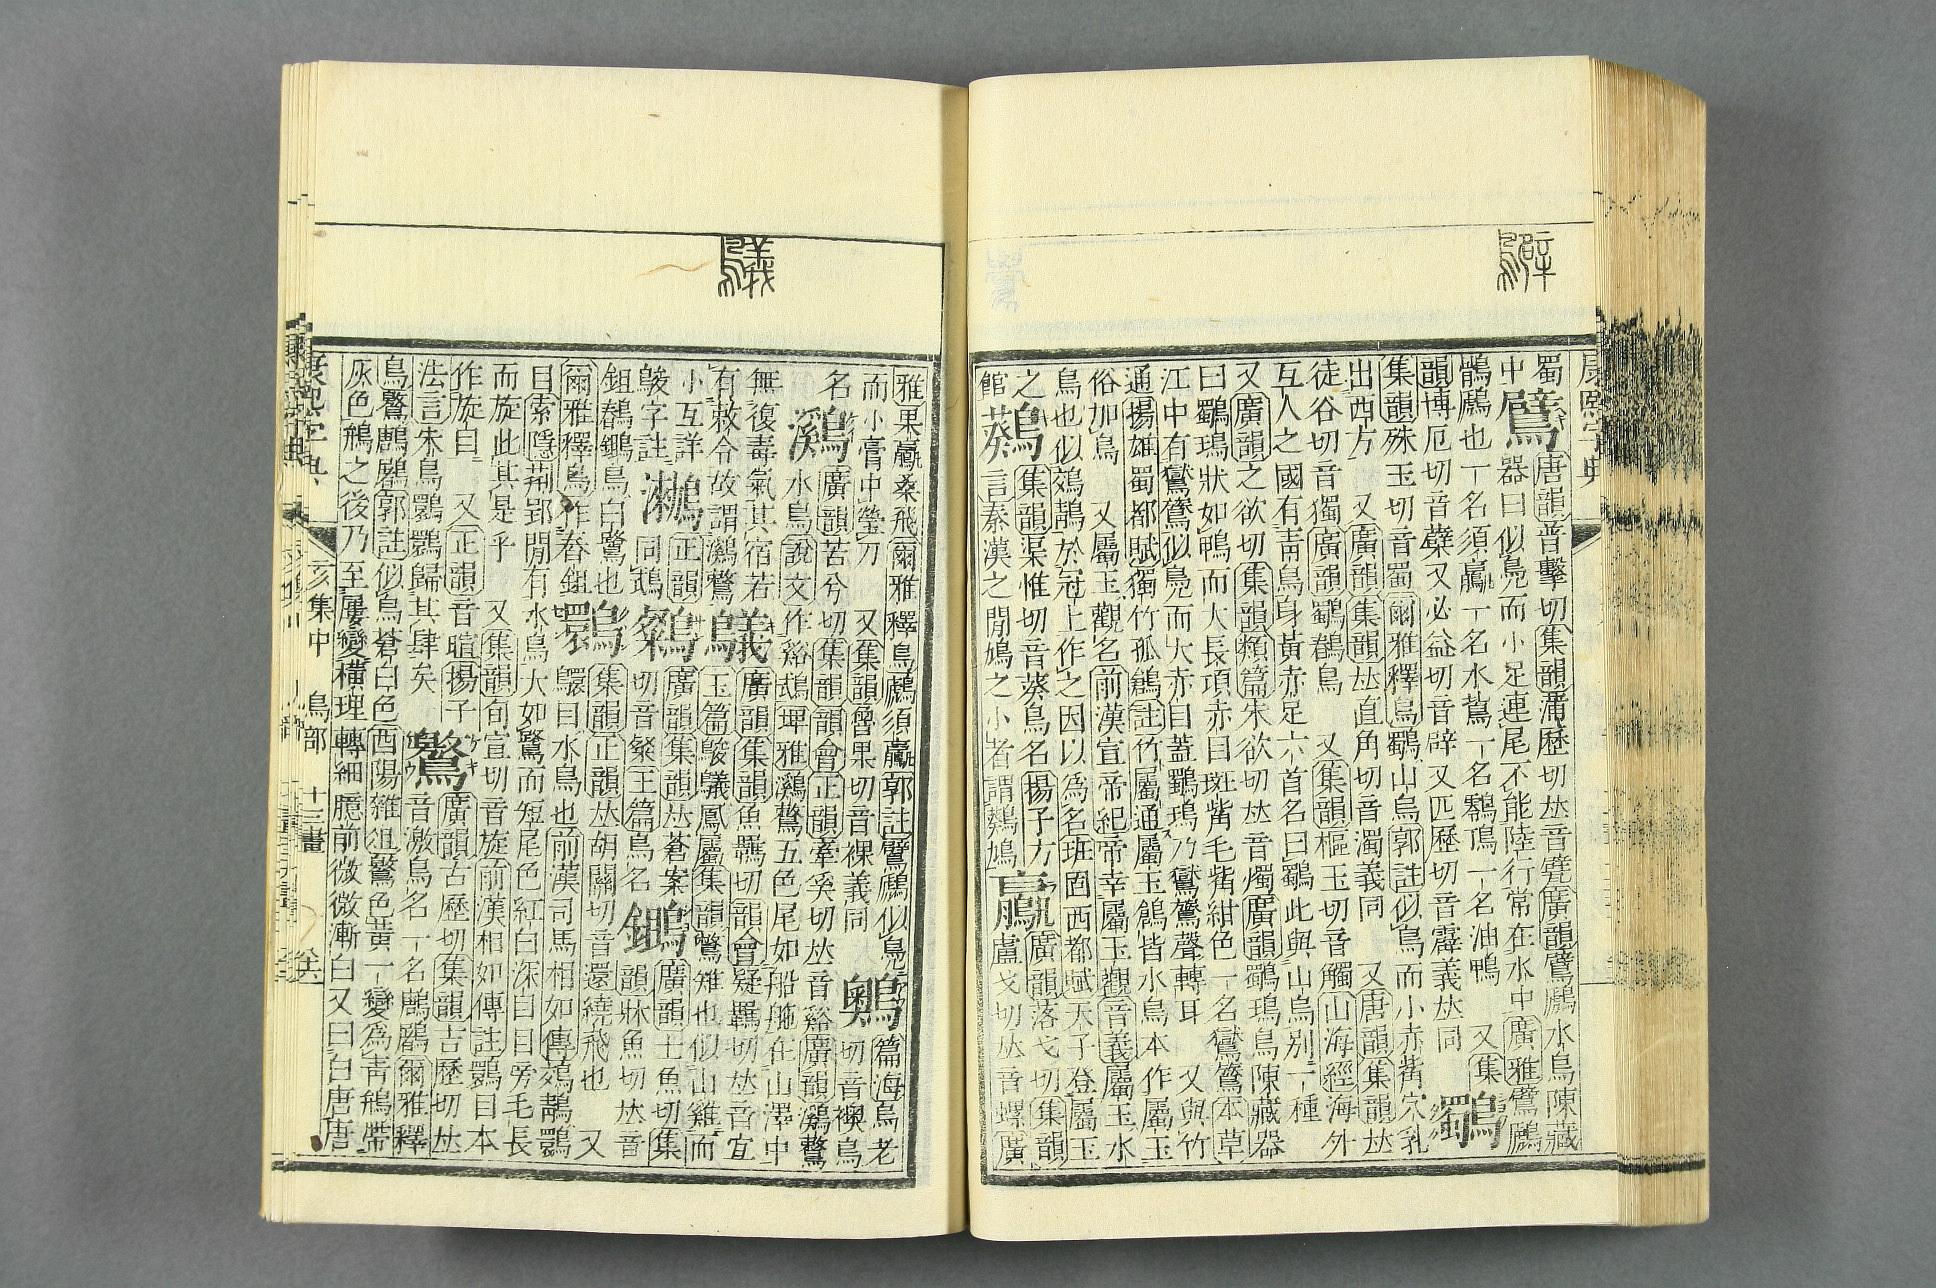 鷿
康熙字典
蜀鷿唐韻普擊切集韻蒲歷切𠀤音甓廣韻鷿鷉水鳥陳藏
中器曰似鳧而小足連尾不能陸行常在水中廣雅鷿鷉
鶻鷉也一名須鸁一名水鶩一名油鴨 又集
韻博厄切音蘗又必益切音辟又匹歷切音霹義𠀤同 鸀
集韻殊玉切音蜀爾雅釋鳥鸀山烏郭註似烏而小赤觜穴乳
出西方 又廣韻集韻𠀤直角切音濁義同 又唐韻集韻𠀤
徒谷切音獨廣韻鸀鶺鳥 又集韻樞玉切音觸山海經海外
互人之國有靑鳥身黃赤足六首名曰鸀此與山烏別一種
又廣韻之欲切集韻類篇朱欲切𠀤音燭廣韻鸀鳿鳥陳藏器
曰鸀鳿狀如鴨而大長項赤目斑觜毛觜紺色一名鸑鷟本草
江中有鸑鷟似鳧而大赤目蓋鸀鳿乃鸑鷟聲轉耳 又與竹
通揚雄蜀都賦獨竹孤鶬註竹屬通屬玉鶬皆水鳥本作屬玉
俗加鳥 又屬玉觀名前漢宣帝紀帝幸屬玉觀音義屬玉水
鳥也似鵁鶄於冠上作之因以爲名班固西都賦天子登屬玉
之鷵集韻渠惟切音葵鳥名揚子方鸁廣韻落戈切集韻
館言秦漢之閒鳩之小者謂鷵鳩盧戈切𠀤音螺廣
鸃
雅果鸁桑飛爾雅釋鳥鷉須鸁郭註鷿鷉似鳧篇海鳥老
而小膏中瑩刀 又集韻魯果切音裸義同切音襖鳥
名鸂廣韻苦兮切集韻韻會正韻牽奚切𠀤音谿廣韻鸂鶒
水鳥說文作谿埤雅鸂鶒五色尾如船柂在山澤中
無復毒氣其宿若鸃廣韻集韻魚羈切韻會疑羈切𠀤音宜
有敕令故謂鸂鶒玉篇鵔鸃鳳屬集韻鷩雉也似山雞而
小互詳正韻廣韻集韻𠀤蒼案廣韻士魚切集
鵔字註同切音粲玉篇鳥名韻牀魚切𠀤音
鉏鶺鋤鳥白鷺也鹮集韻正韻𠀤胡關切音還繞飛也 又
爾雅釋鳥作舂鉏鹮目水鳥也前漢司馬相如傳鵁鶄鹮
目索隱荆郢閒有水鳥大如鷺而短尾色紅白深目目旁毛長
而旋此其是乎 又集韻旬宣切音旋前漢相如傳註鹮目本
作旋目 又正韻音暄揚子鸄廣韻古歷切集韻吉歷切𠀤
法言朱鳥鹮鹮歸其肆矣音激鳥名爾雅釋
鳥鸄郭註似烏蒼白色酉陽雜俎鸄色黃一變爲靑鴘帶
灰色鴘之後乃至屢變橫理轉細臆前微微漸白又曰白唐唐
康熙字典 亥集中 鳥部 十三畫